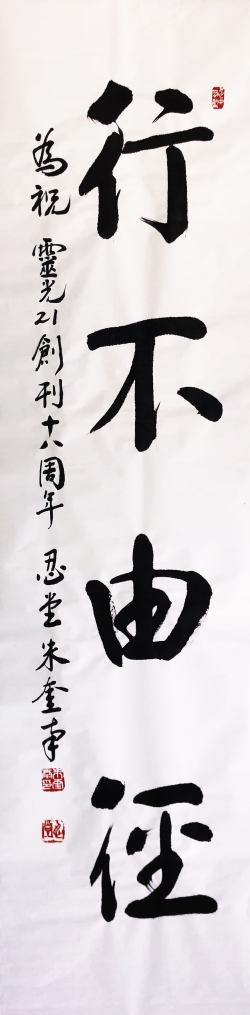 行不由徑
為祝 靈光21創刊十八周年 忍堂 朱奎東